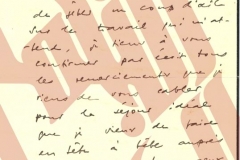 de jeter un coup d'œil
sur le travail qui m'at-
tend, je tiens à vous
confirmer par écrit tous
les remerciements que je
viens de vous cabler
pour le séjour idéal
que je viens de faire
en tête à tête auprès